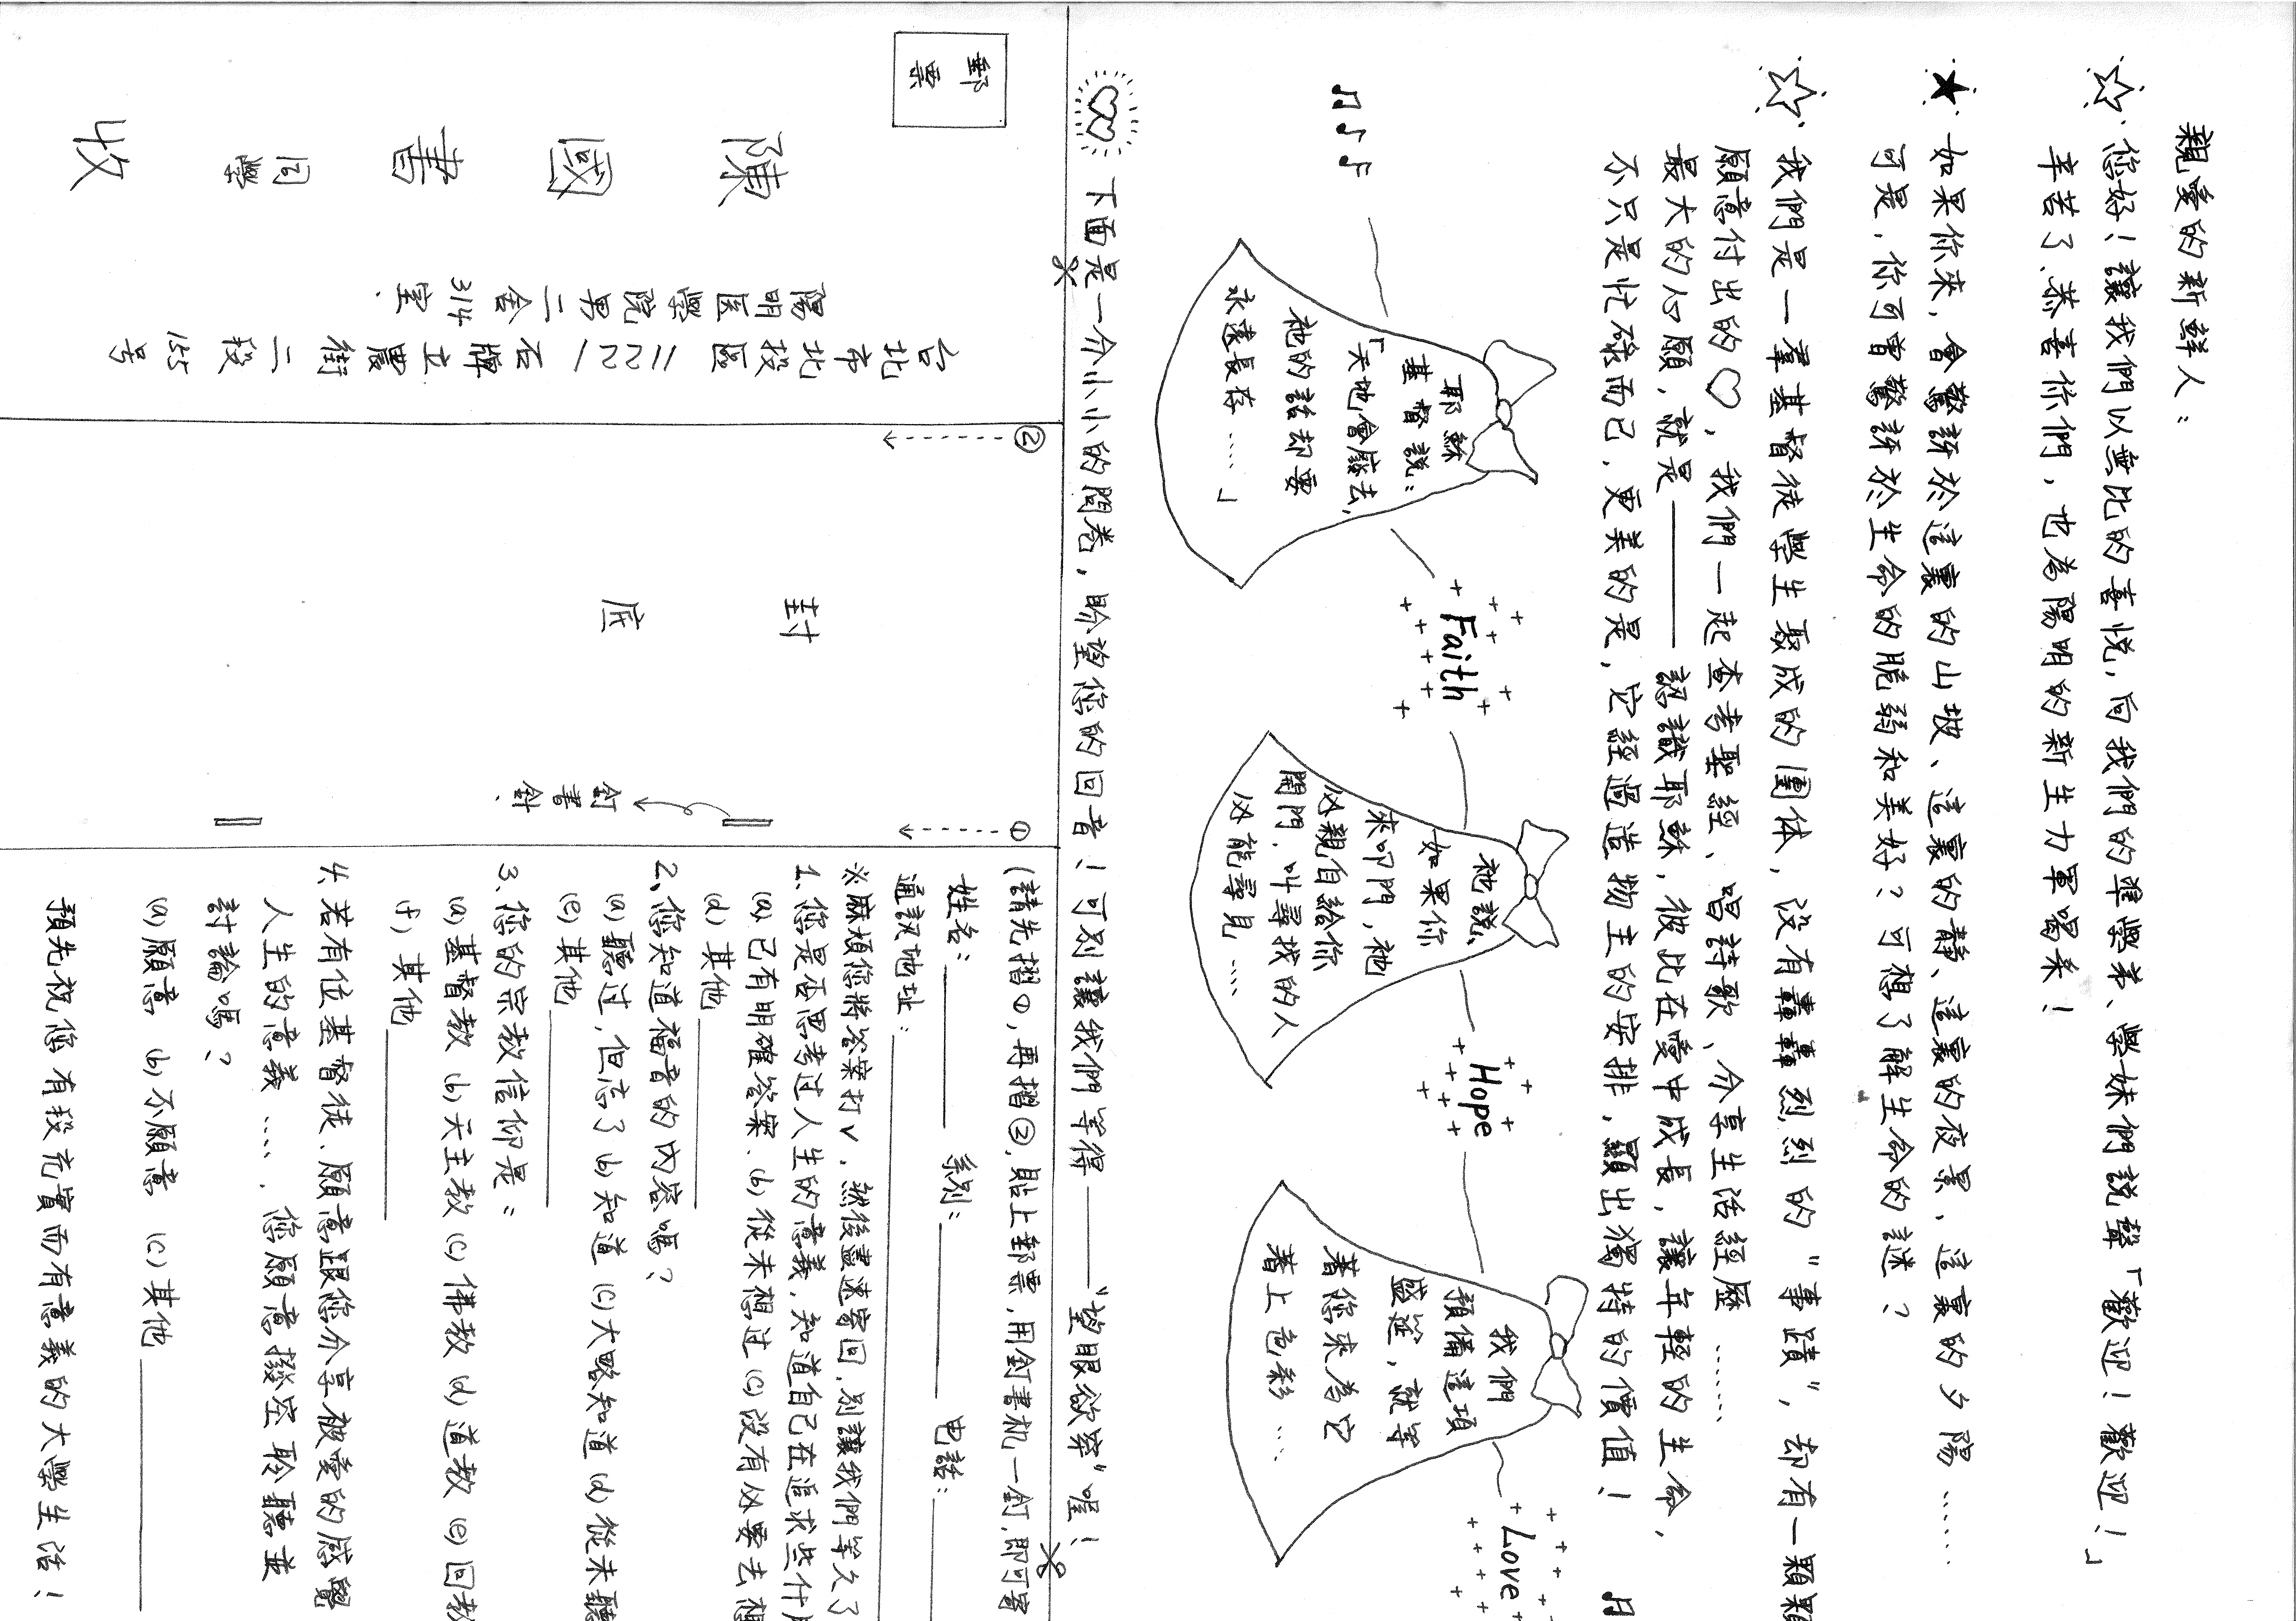 親愛的新鮮人：
您好！讓我們以無比的喜悅，向我們的學弟、學妹們說聲「歡迎！歡迎！」
辛苦了、恭喜你們，也為陽明的新生力軍喝釆！
如果你來，會驚訝於這裏的山坡、這裏的靜、這裏的夜景、這裏的夕陽……
可是，你可曾驚訝於生命的脆弱和美好？可想了解生命的謎？
我們是一羣基督徒學生聚成的團体，没有轟轟烈烈的"事蹟"，却有一顆顆
願意付出的♡，我們一起查考聖經、唱詩歌、分享生活經歷……
最大的心願，就是——認識耶穌，彼此在愛中成長，讓年輕的生命，
不只是忙碌而已，更美的是，它經過造物主的安排，顯出獨特的價值！
耶穌
基督說：
「天地會廢去，
祂的話却要
永遠長存……」
Faith
祂說、
如果你
來叩門，祂
必親自給你
開門，叫尋找的人
必能尋見……
Hope
我們
預備這項
盛筵，就等
著您來為它
著上色彩……
Love
下面是一个小小小的問卷，盼望您的回音！可别讓我們等得——"望眼欲穿"喔！
郵票
台北市北投區11221石牌立農街二段155号
陽明医學院男二舍314室
陳國書同學收
②
封底
①
釘書針
(請先摺①，再摺②，貼上郵票，用釘書机一釘，即可寄
姓名：　系别：　电話：
通訊地址：
※麻煩您將答案打v，然後盡速寄回，别讓我們等久了
1.您是否思考过人生的意義，知道自己在追求些什
(a)已有明確答案 (b)從未想过 (c)没有必要去想
(d)其他
2.您知道福音的內容嗎？
(a)聽过，但忘了 (b)知道 (c)大略知道 (d)從未聽
(e)其他
3.您的宗教信仰是：
(a)基督教 (b)天主教 (c)佛教 (d)道教 (e)回教
(f)其他
4.若有位基督徒，願意跟您分享被愛的感覺
人生的意義……，您願意撥空聆聽並
討論嗎？
(a)願意 (b)不願意 (c)其他
預先祝您有段充實而有意義的大學生活！